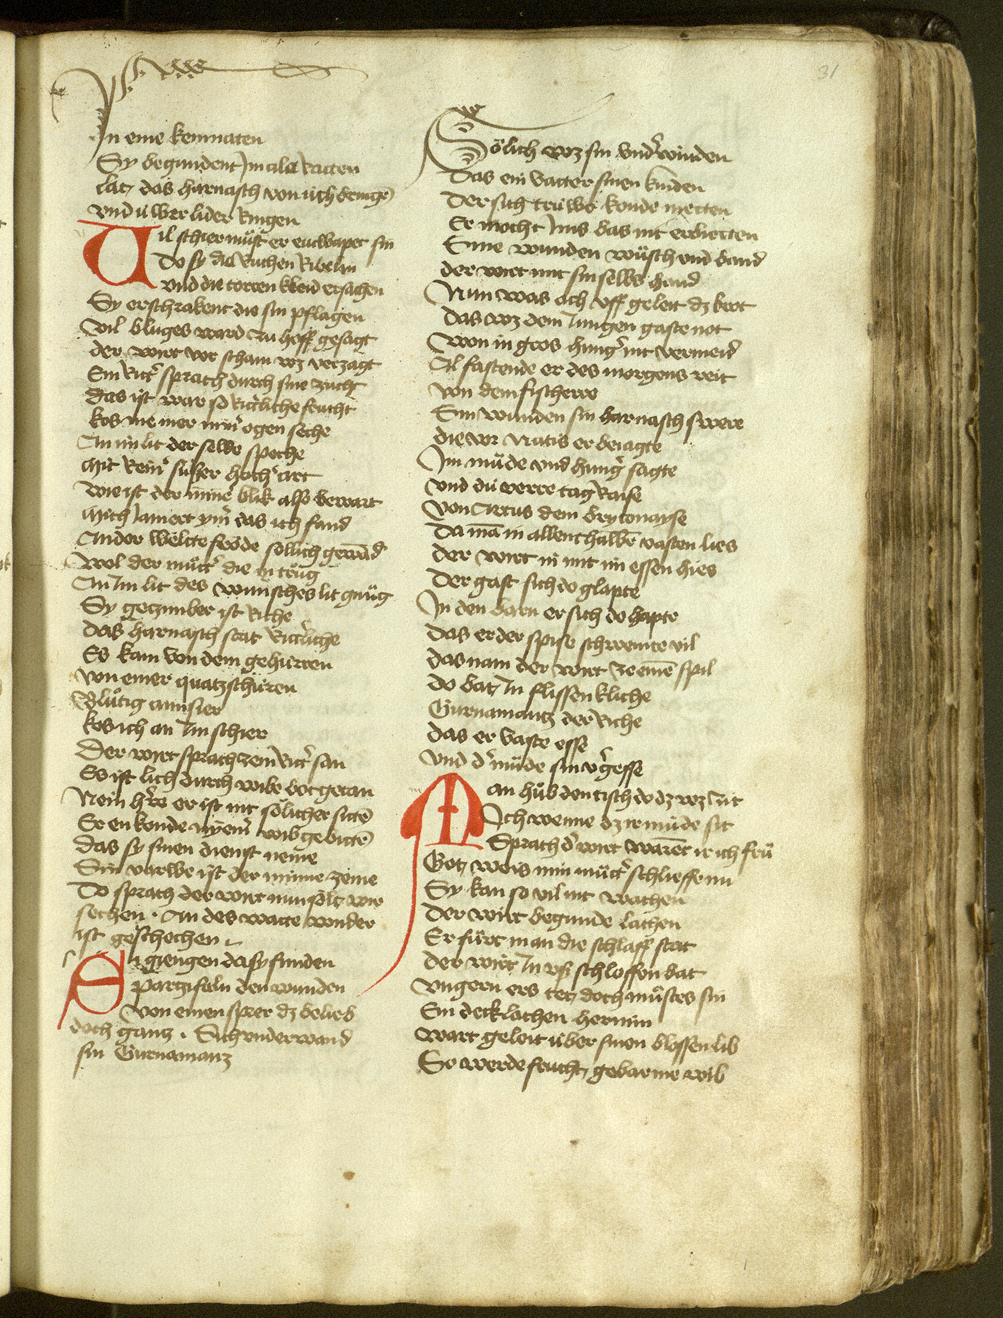 xxxj
31
In eine kemnaten
Sy begundent Im alle ratten
Lat, das harnasch von üch bringē
vnd ü wer lider Ringen
Vil schier můst er entwapet sin
Do sy die Ruchen Ribelin
vnd die torren kleid ersachen
Sy erschrakent die sin pflagen
Vil bluges ward zu hoff gesagt
der wirt vor scham wz verzagt
Ein Ritt' sprach durch sine zucht
das ist war so Ritt'liche frucht
kos nie mer min' ogen seche
An im lit der selde speche
Mit Rein' süsser hoch' art
Wie ist der minne blik alsus bewart
Mich Iamert ym' das ich fand
An der welte fröde sollich gewād
Wol der mutt' die in trůg
An Im lit des wunsches lit gnůg
Sy gezimber ist Riche
das harnasch stat Ritt'liche
Es kam von dem gehürren
von einer quatzschüren
Blůtig amisier
kos ich an Im schier
Der wirt sprach zem Ritt' san
Es ist lich durch wibe bot getan
Nein h're er ist mit sölicher sittē
Er en konde nyem' wib gebittē
das sy sinen dienst neme
Sin varwe ist der minne zeme
Do sprach der wirt nun sölt wir
sechen . An des watte wonder
ist geschechen .
Sy giengen da sy funden
Partzifaln den wunden
Von einen sper dz beleib
doch gantz . Sich vnderwand
sin Gurnamanz
Sölich wz sin vnd'winden
Das ein vatter sinen kinden
Der sich trüwe konde nietten
Er mocht Ims das nit erbietten
Sine wunden wůsch vnd band
der wirt mit sin selbs hand
Nun was och vff geleit dz brot
das wz dem Iungen gaste not
Won in gros hung' nit vermeid
Al fastende er des morgens reit
von dem fischerre
Sin wunden sin harnasch swere
die vor Natis er beiagte
Im můde vnd hung' sagte
Vnd dü verre tag Raise
Von Artus dem brytonayse
Da mā in allenthalbē vasten lies
der wirt in mit im essen hies
Der gast sich do glapte
In den barn er sich do hapte
das er der spise schwente vil
das nam der wirt ze eime spil
do bat, In flissenkliche
Gurnamantz der Riche
das er vaste esse
Vnd d' můde sin v'gesse
Man hůb den tisch do dz wz Zit
Ich wenne dz ir müde sit
Sprach d' wirt warēt ir ich frů
Got, weis min můtt' schlieffe nu
Sy kan so vil nit wachen
Der wirt begunde lachen
Er fůrt in an die schlaff stat
der wirt In vs schloffen bat
Vngern ers tet, doch můstes sin
Ein decklachen hermin
wart geleit über sinen blossen lib
So werde frucht, gebar nie wib